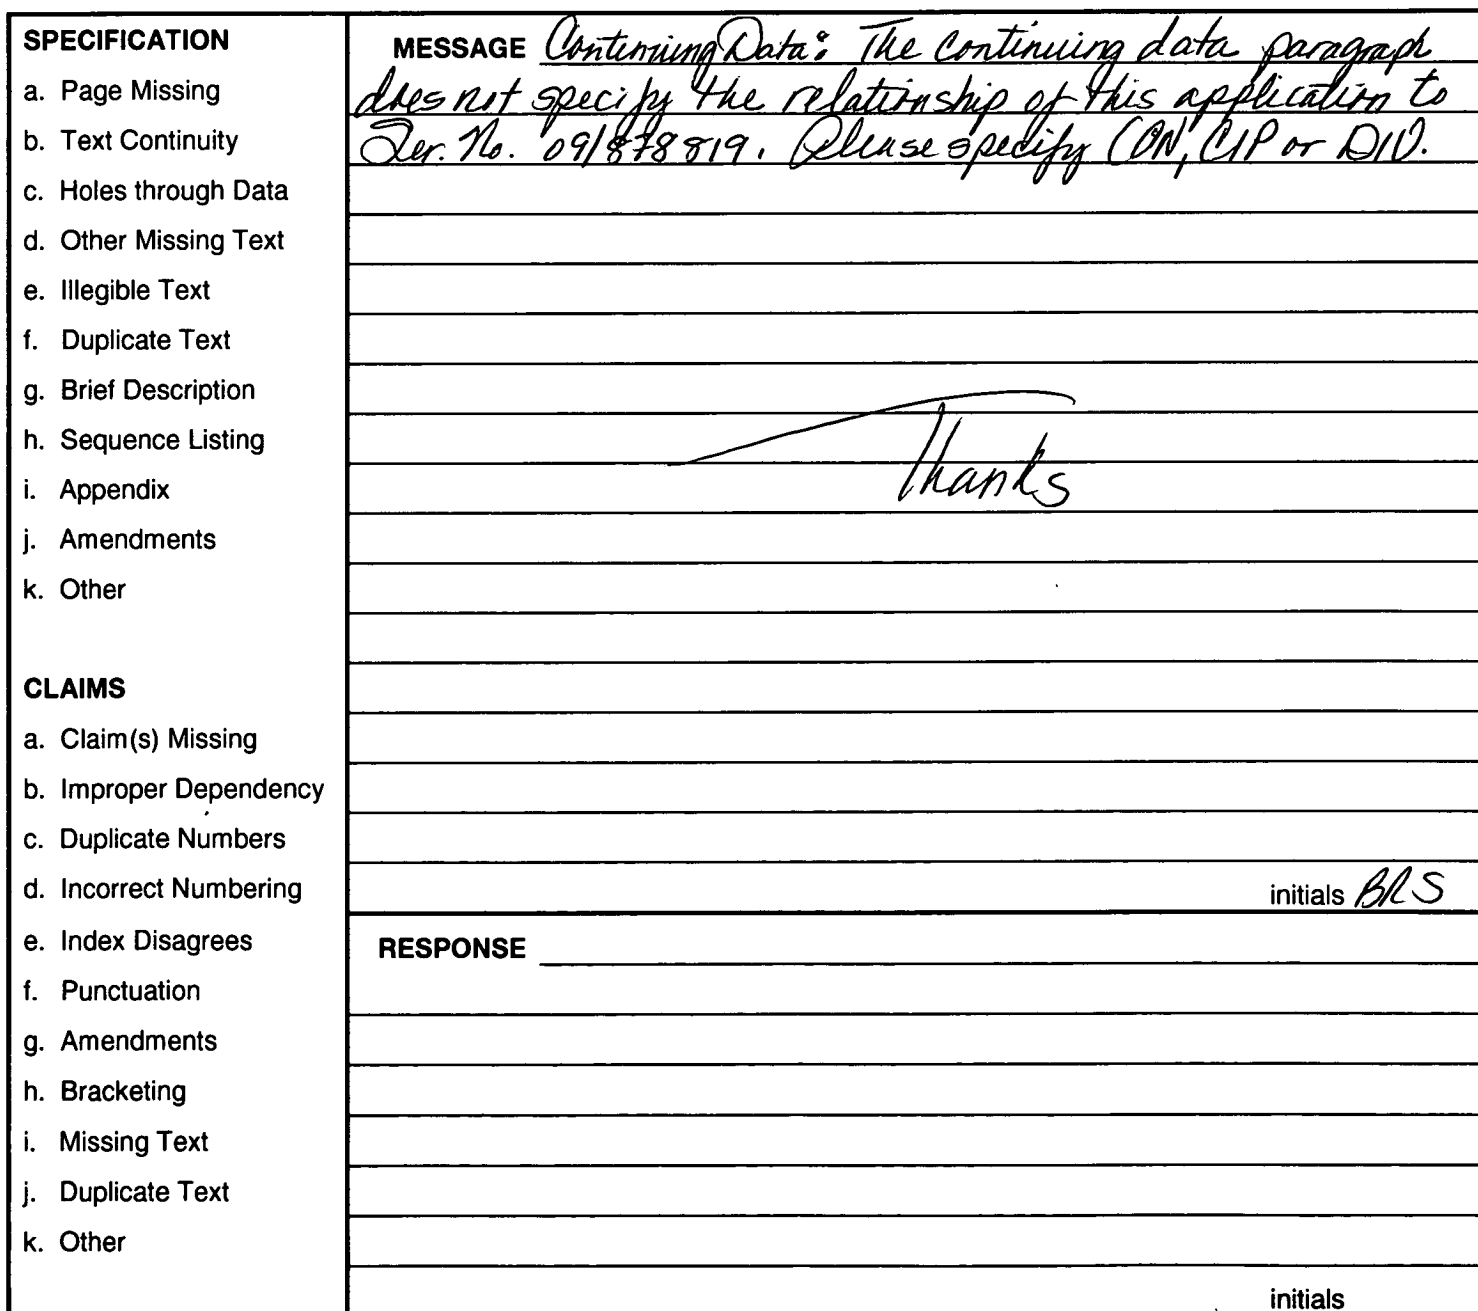 SPECIFICATION
a. Page Missing
b. Text Continuity
c. Holes through Data
d. Other Missing Text
e. Illegible Text
f. Duplicate Text
g. Brief Description
h. Sequence Listing
i. Appendix
j. Amendments
k. Other
CLAIMS
a. Claim(s) Missing
b. Improper Dependency
c. Duplicate Numbers
d. Incorrect Numbering
e. Index Disagrees
f. Punctuation
g. Amendments
h. Bracketing
i. Missing Text
j. Duplicate Text
k. Other
MESSAGE Continuing Data: The continuing data paragraph
does not specify the relationship of this application to
Ser. No. 09/878819. Please specify CON, CIP or DIV.
Thanks
initials BRS
RESPONSE
initials